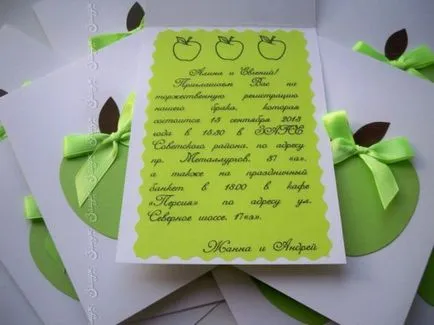 Алина и Евгений!
Приглашаем Вас на
торжественную регистрацию
нашего брака, которая
состоится 13 сентября 2013
года в 15:30 в ЗАГСе
Советского района, по адресу
пр. Металлургов. 37 «а».
а также на праздничный
банкет в 18:00 в кафе
«Персия» по адресу ул.
Северное шоссе. 17«а».
Жанна и Андрей